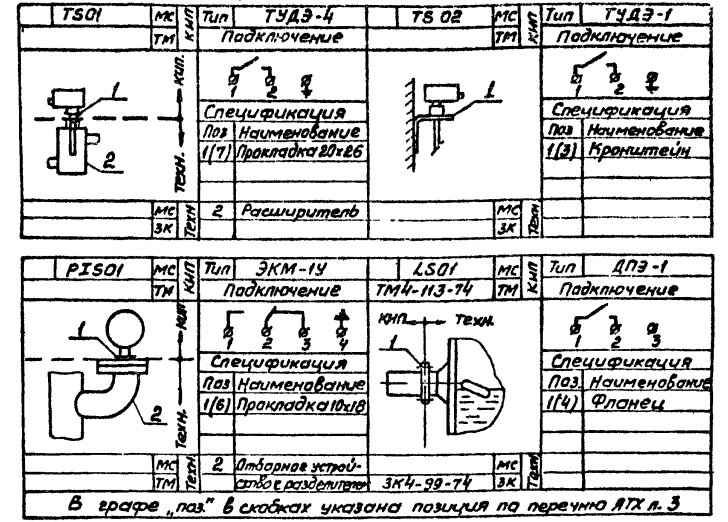 TS01 МС КИП Тип ТУДЭ-4
ТМ Подключение
1 2
КИП.
Техн.
1
2
Спецификация
Поз Наименование
1(7) Прокладка 20х26
МС Техн 2 Расширитель
ЗК
TS 02 МС КИП Тип ТУДЭ-1
ТМ Подключение
1
1 2
Спецификация
Поз Наименование
1(3) Кронштейн
МС Техн
ЗК
PIS01 МС КИП Тип ЭКМ-1У
ТМ Подключение
1 2 3 4
КИП
Техн.
1
2
Спецификация
Поз Наименование
1(6) Прокладка 10х18
МС Техн 2 Отборное устрой-
ТМ ство с разделителем
LS01 МС КИП Тип ДПЭ-1
ТМ4-113-74 ТМ Подключение
КИП Техн.
1
1 2 3
Спецификация
Поз. Наименование
1(4) Фланец
МС Техн
ЗК4-99-74 ЗК
В графе „поз." в скобках указана позиция по перечню АТХ л. 3